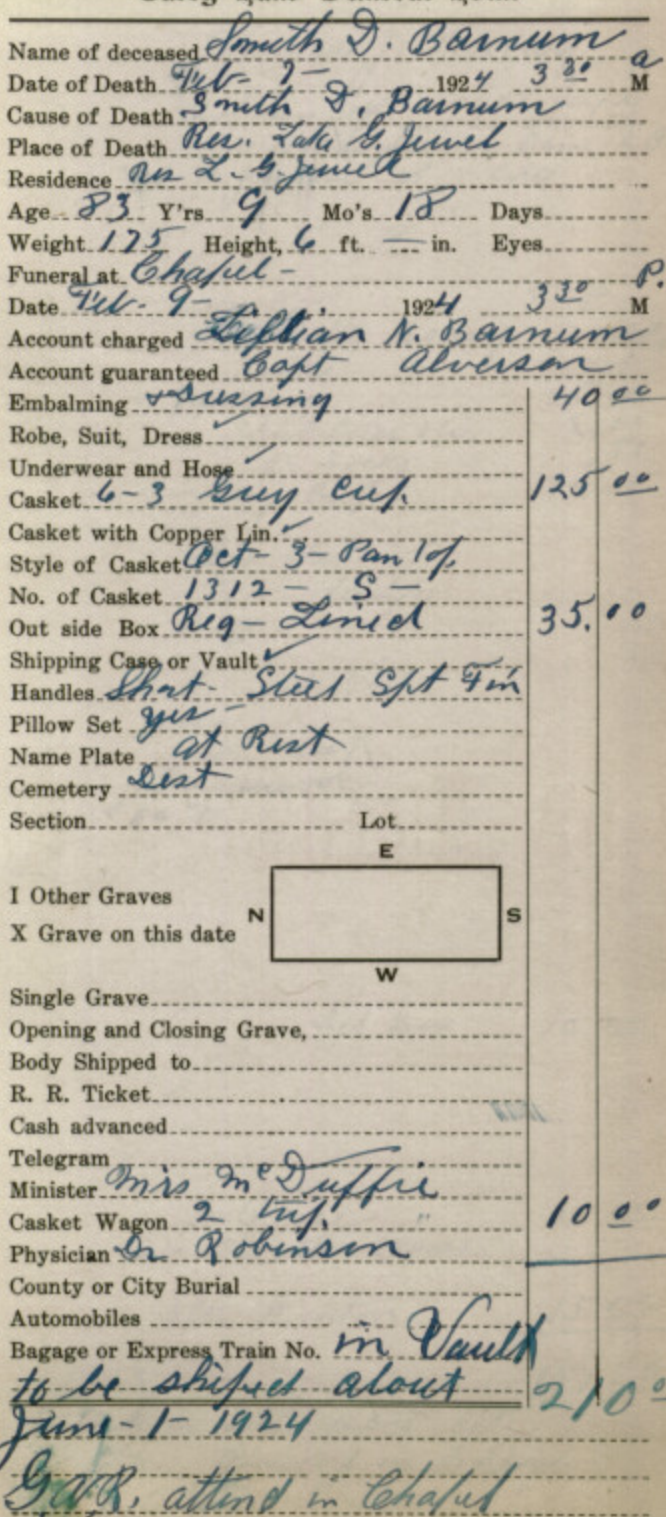 Name of deceased Smith D. Barnum
Date of Death Feb- 7- 1924 3 30 a M
Cause of Death Smith D. Barnum
Place of Death Res. G. Jewel
Residence Res L. G. Jewell
Age 83 Y'rs 9 Mo's 18 Days
Weight 175 Height, 6 ft. — in. Eyes
Funeral at Chapel -
Date Feb- 9- 1924 3 30 P. M
Account charged N. Barnum
Account guaranteed Capt Alverson
Embalming + Dressing 40 00
Robe, Suit, Dress ✓
Underwear and Hose ✓
Casket 6-3 Grey 125 00
Casket with Copper Lin. ✓
Style of Casket Oct- 3- Pan
No. of Casket 1312 - S -
Out side Box Reg - Lined 35.00
Shipping Case or Vault ✓
Handles Short- Steel
Pillow Set yes -
Name Plate at Rest
Cemetery
Section Lot
E
I Other Graves
N S
X Grave on this date
W
Single Grave
Opening and Closing Grave,
Body Shipped to
R. R. Ticket
Cash advanced
Telegram
Minister Mrs McDuffie
Casket Wagon 2 10 00
Physician Dr Robinson
County or City Burial
Automobiles
Bagage or Express Train No. in Vault
to be shiped about 210 0
June - 1 - 1924
G.A.R. attend in Chapel